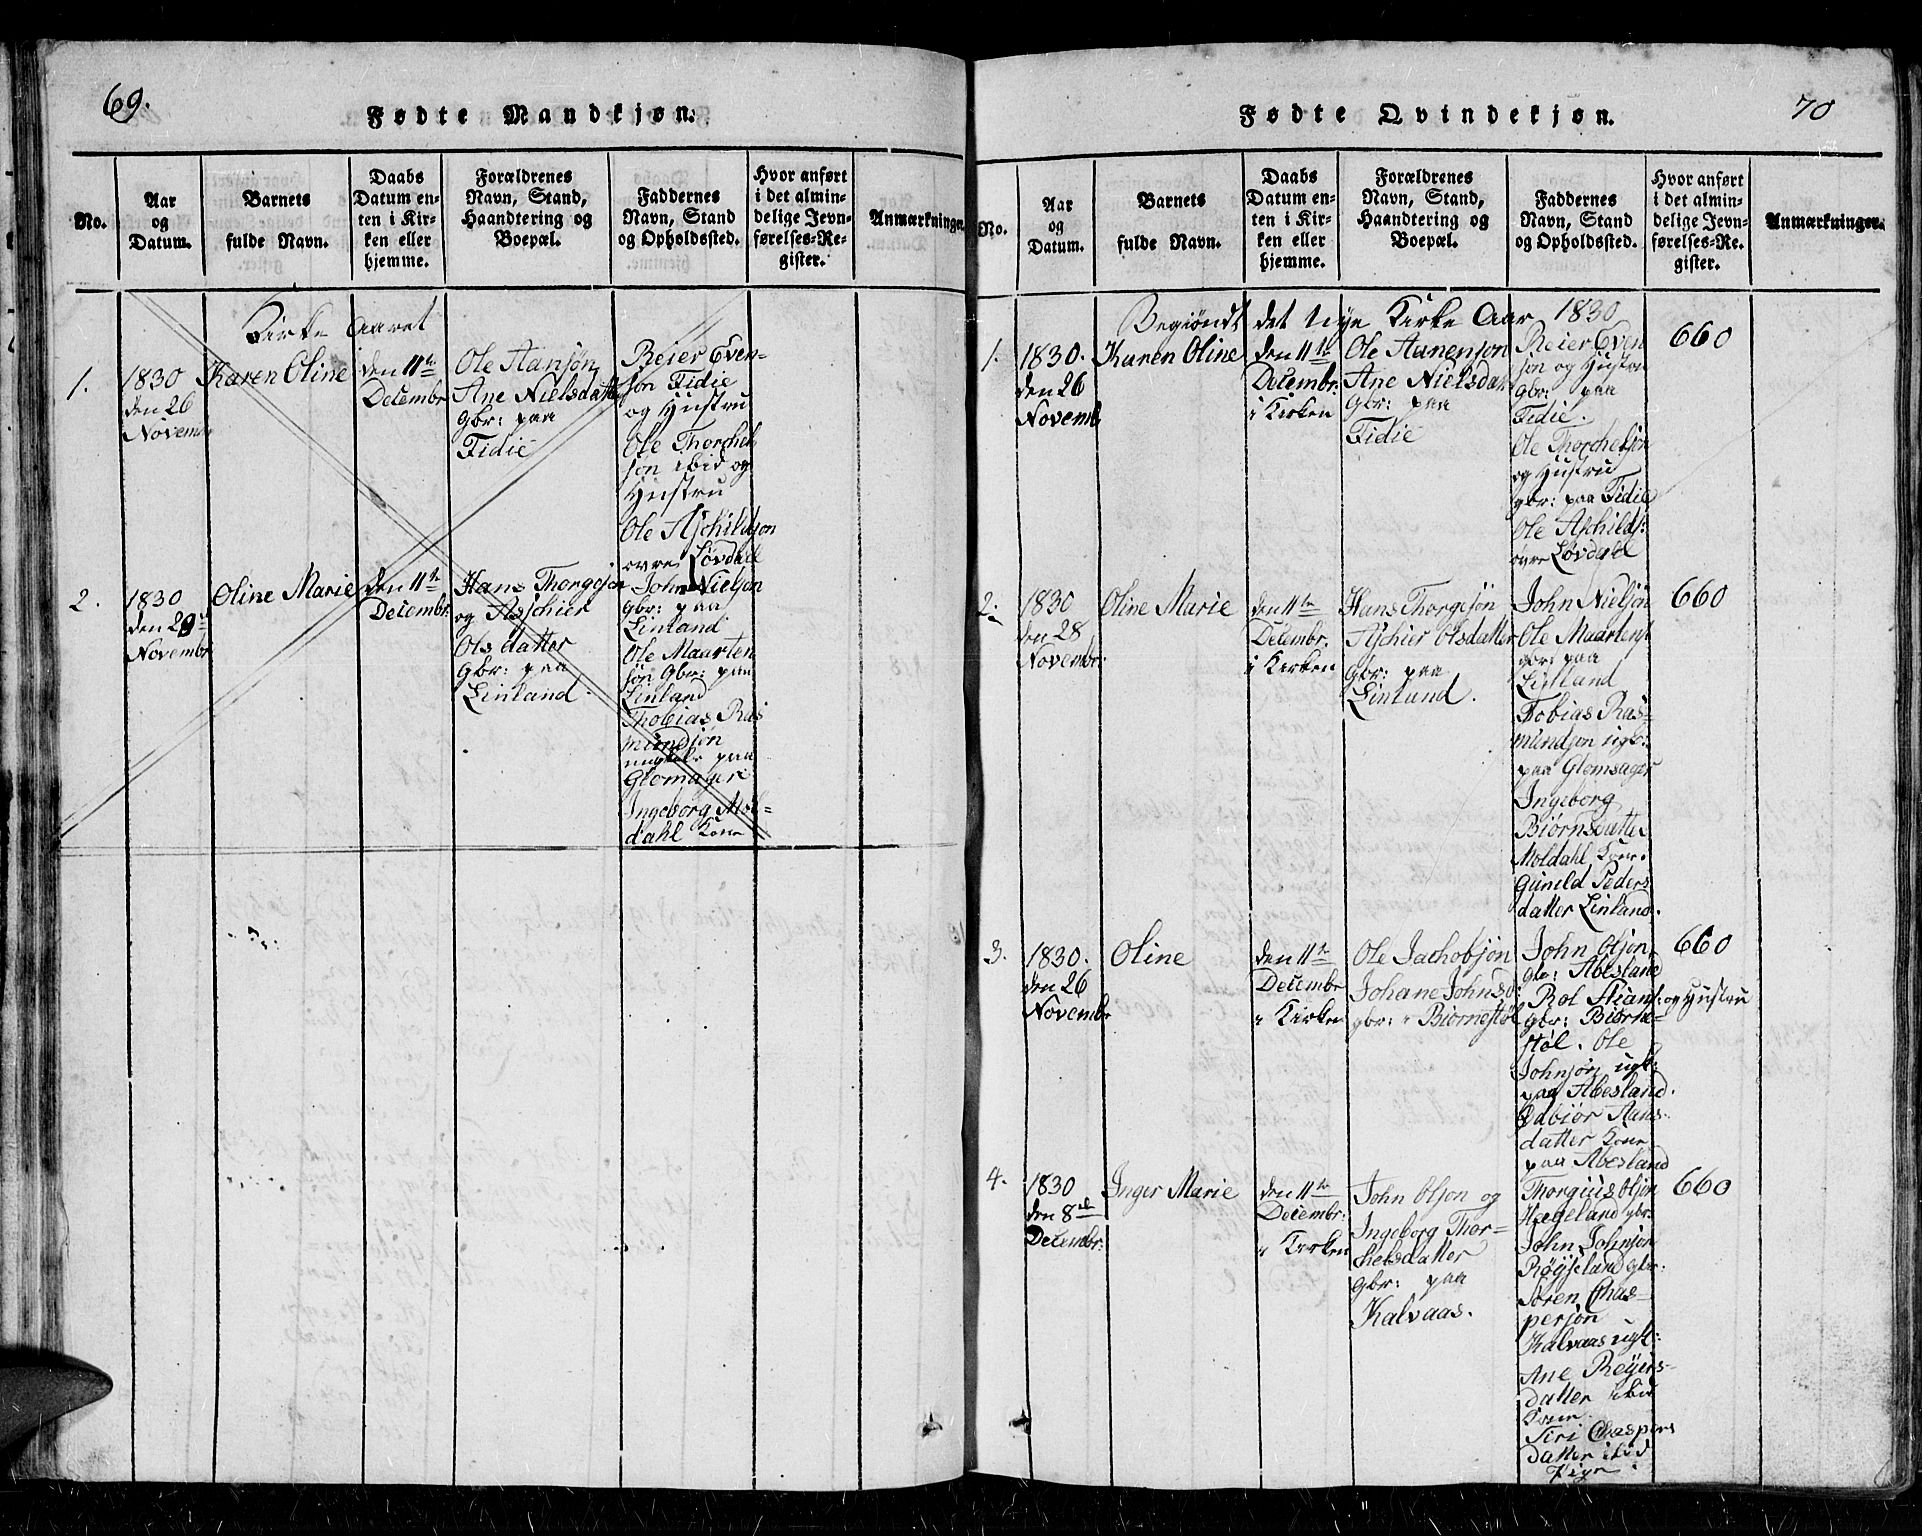 69.
Fødte Mandkjøn.
No.
Aar
og
Datum.
Barnets
fulde Navn.
Daabs
Datum en-
ten i Kir-
ken eller
hjemme.
Forældrenes
Navn, Stand,
Haandtering og
Boepæl.
Faddernes
Navn, Stand
og Opholdssted.
Hvor anført
i det almin-
delige Jevn-
førelses-Re-
gister.
Anmærkninger.
Kirke Aaret
1.
1830
den 26
Novembr
Karen Oline
den 11te
Decembr
Ole Aansøn
Ane Nielsdatter
gbr: paa
Fidie
Reier Even-
søn Fidie
og Hustru
Ole Thorchel
søn ibid og
Hustru
Ole Aschildsøn
øvre Løvdahl
2.
1830
den 29
Novembr
Oline Marie
den 11te
Decembr.
Hans Thorgesøn
og Aschier
Olsdatter
gbr: paa
Linland.
John Nielsøn
gbr: paa
Linland
Ole Maarten
søn: gbr: paa
Linland
Thobias Ras
mundsøn
paa
Glomsager
Ingeborg Mol=
dahl Kone
70
Fødte Qvindekjøn.
No.
Aar
og
Datum.
Barnets
fulde Navn.
Daabs
Datum en-
ten i Kir-
ken eller
hjemme.
Forældrenes
Navn, Stand,
Haandtering og
Boepæl.
Faddernes
Navn, Stand
og Opholdssted.
Hvor anført
i det almin-
delige Jevn-
førelses-Re-
gister.
Anmærkninger.
Begiøndt det nye Kirke Aar 1830
1.
1830.
den 26
Novembr
Karen Oline
den 11te
Decembr.
i Kirken
Ole Aanensøn
Ane Nielsdatr
gbr: paa
Fidie
Reier Even
søn og Hustru
gbr: paa
Fidie.
Ole Thorchelsøn
og Hustru
gbr: paa Fidie
Ole Aschilds:
øvre Løvdahl
660
2.
1830
den 28
Novembr:
Oline Marie
den 11te
Decembr.
i Kirken
Hans Thorgesøn
Aschier Olsdatter
gbr: paa
Linland.
John Nielsøn
Ole Maartens
gbr: paa
Linland
Tobias Ras=
mundsøn ugk:
paa Glomsager
Ingeborg
Biørnsdatter
Moldahl Kone.
Gunild Peders
datter Linland.
660
3.
1830.
den 26
Novembr
Oline
den 11te
Decembr
i Kirken
Ole Jachobsøn
Johane Johnsd:
gbr: i Biørnestøl
John Olsøn
gbr: Abesland
Rol Stians: og Hustru
gbr: Biørne=
støl. Ole
Johnsøn ugk:
paa Abesland.
Odbiør Aans=
datter Kone
paa Abesland
660
4.
1830
den 8de
Decembr:
Inger Marie
den 11te
Decembr:
i Kirken
John Olsøn og
Ingeborg Thor=
chelsdatter
gbr: paa
Kalvaas.
Thorgius Olsøn
Hægeland gbr:
John Johnsøn
Røyseland gbr:
Søren Chas=
persøn
Kalvaas ugk:
Ane Reÿers=
datter ibid
Kone.
Siri Chaspers
datter ibid
Pige.
660